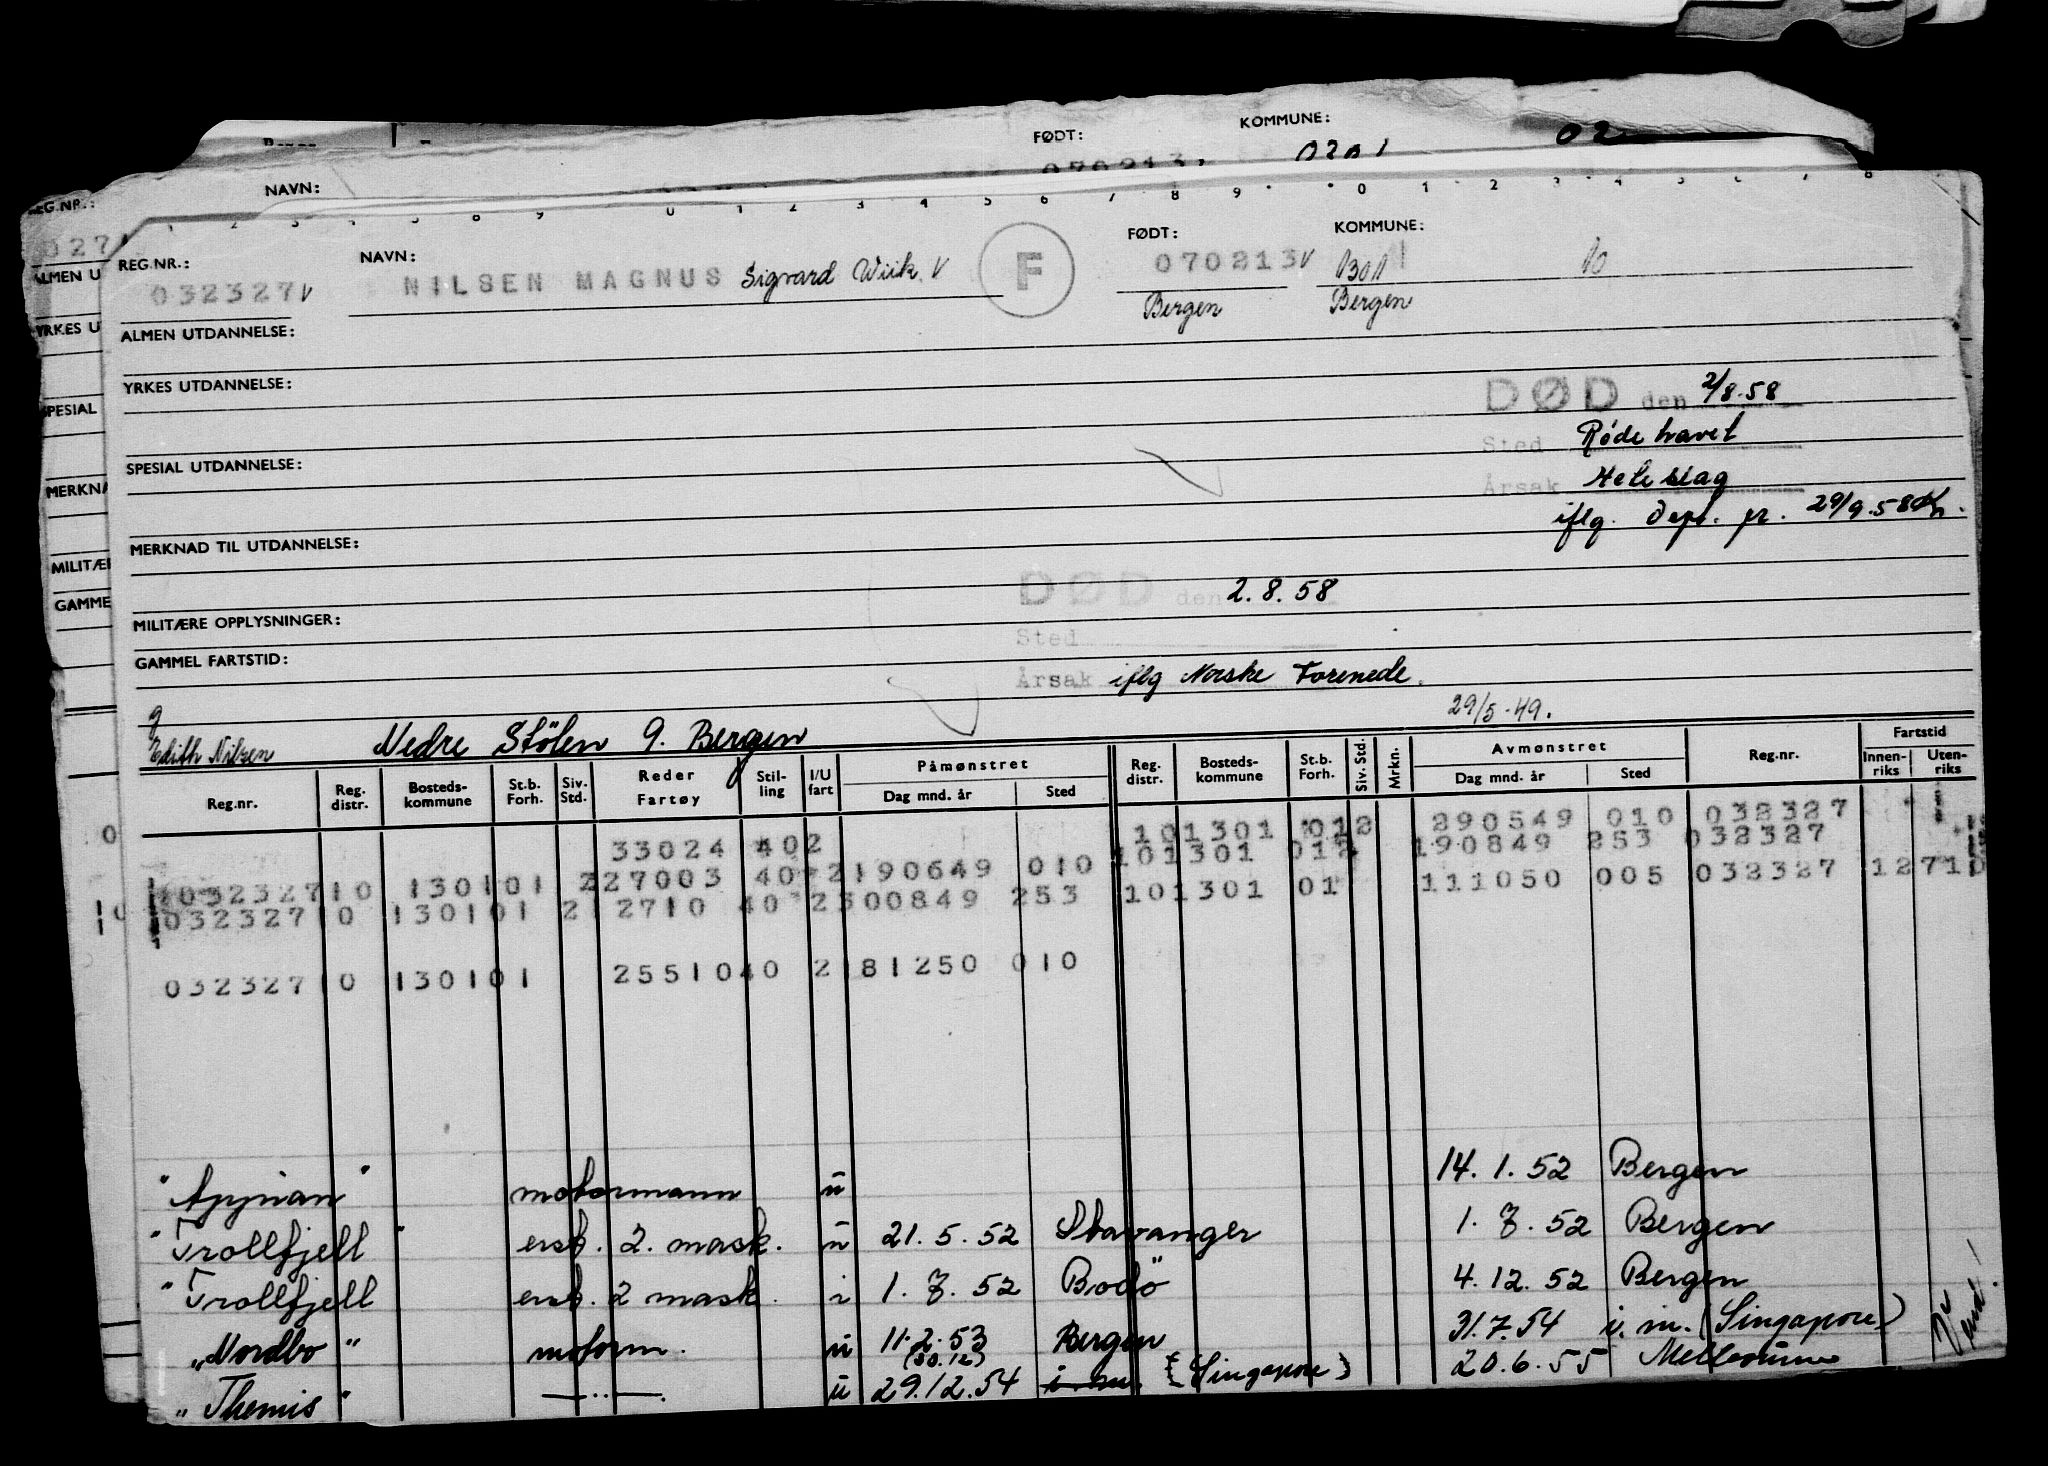 FØDT: KOMMUNE:
070213. 0201 02
REG.NR.: NAVN:
027
ALMEN U
YRKES U
SPESIAL
MERKNA
MILITÆR
GAMME
REG.NR.: NAVN: FØDT: KOMMUNE:
032327 V NILSEN MAGNUS Sigvard Wiik V F 070213 V 1301 10
Bergen Bergen
ALMEN UTDANNELSE:
YRKES UTDANNELSE:
DØD den 2/8.58
Sted Røde havet
SPESIAL UTDANNELSE:
Årsak Heteslag
iflg. Dept. pr. 29/9.58
MERKNAD TIL UTDANNELSE:
DØD den 2.8.58
MILITÆRE OPPLYSNINGER:
Sted
GAMMEL FARTSTID:
Årsak iflg Norske Forenede.
g
29/5-49.
Edith Nilsen Nedre Stölen 9. Bergen
Reg.nr. Reg. distr. Bosteds- kommune St.b. Forh. Siv. Std. Reder Fartøy Stil- ling I/U fart Påmønstret Dag mnd. år Sted Reg. distr. Bosteds- kommune St.b. Forh. Siv. Std. Mrkn. Avmønstret Dag mnd. år Sted Reg.nr. Fartstid Innen- riks Uten- riks
33024 402 101301 012 290549 010 032327
032327 10 130101 2 27003 40 2 190649 010 101301 012 190849 253 032327
032327 10 130101 2 2710 40 2 300849 253 101301 01 111050 005 032327 12 71
032327 10 130101 25510 40 2 181250 010
"Appian" motormann u 14.1.52 Bergen
"Trollfjell" erst. 2. mask. u 21.5.52 Stavanger 1.7.52 Bergen
"Trollfjell erst. 2 mask. i 1.7.52 Bodö 4.12.52 Bergen
"Nordbo" motorm. u 11.2.53 Bergen 31.7.54 i.m. (Singapore)
(30.12)
"Themis" —..—. u 29.12.54 i.m. (Singapore) 20.6.55 Melbourne